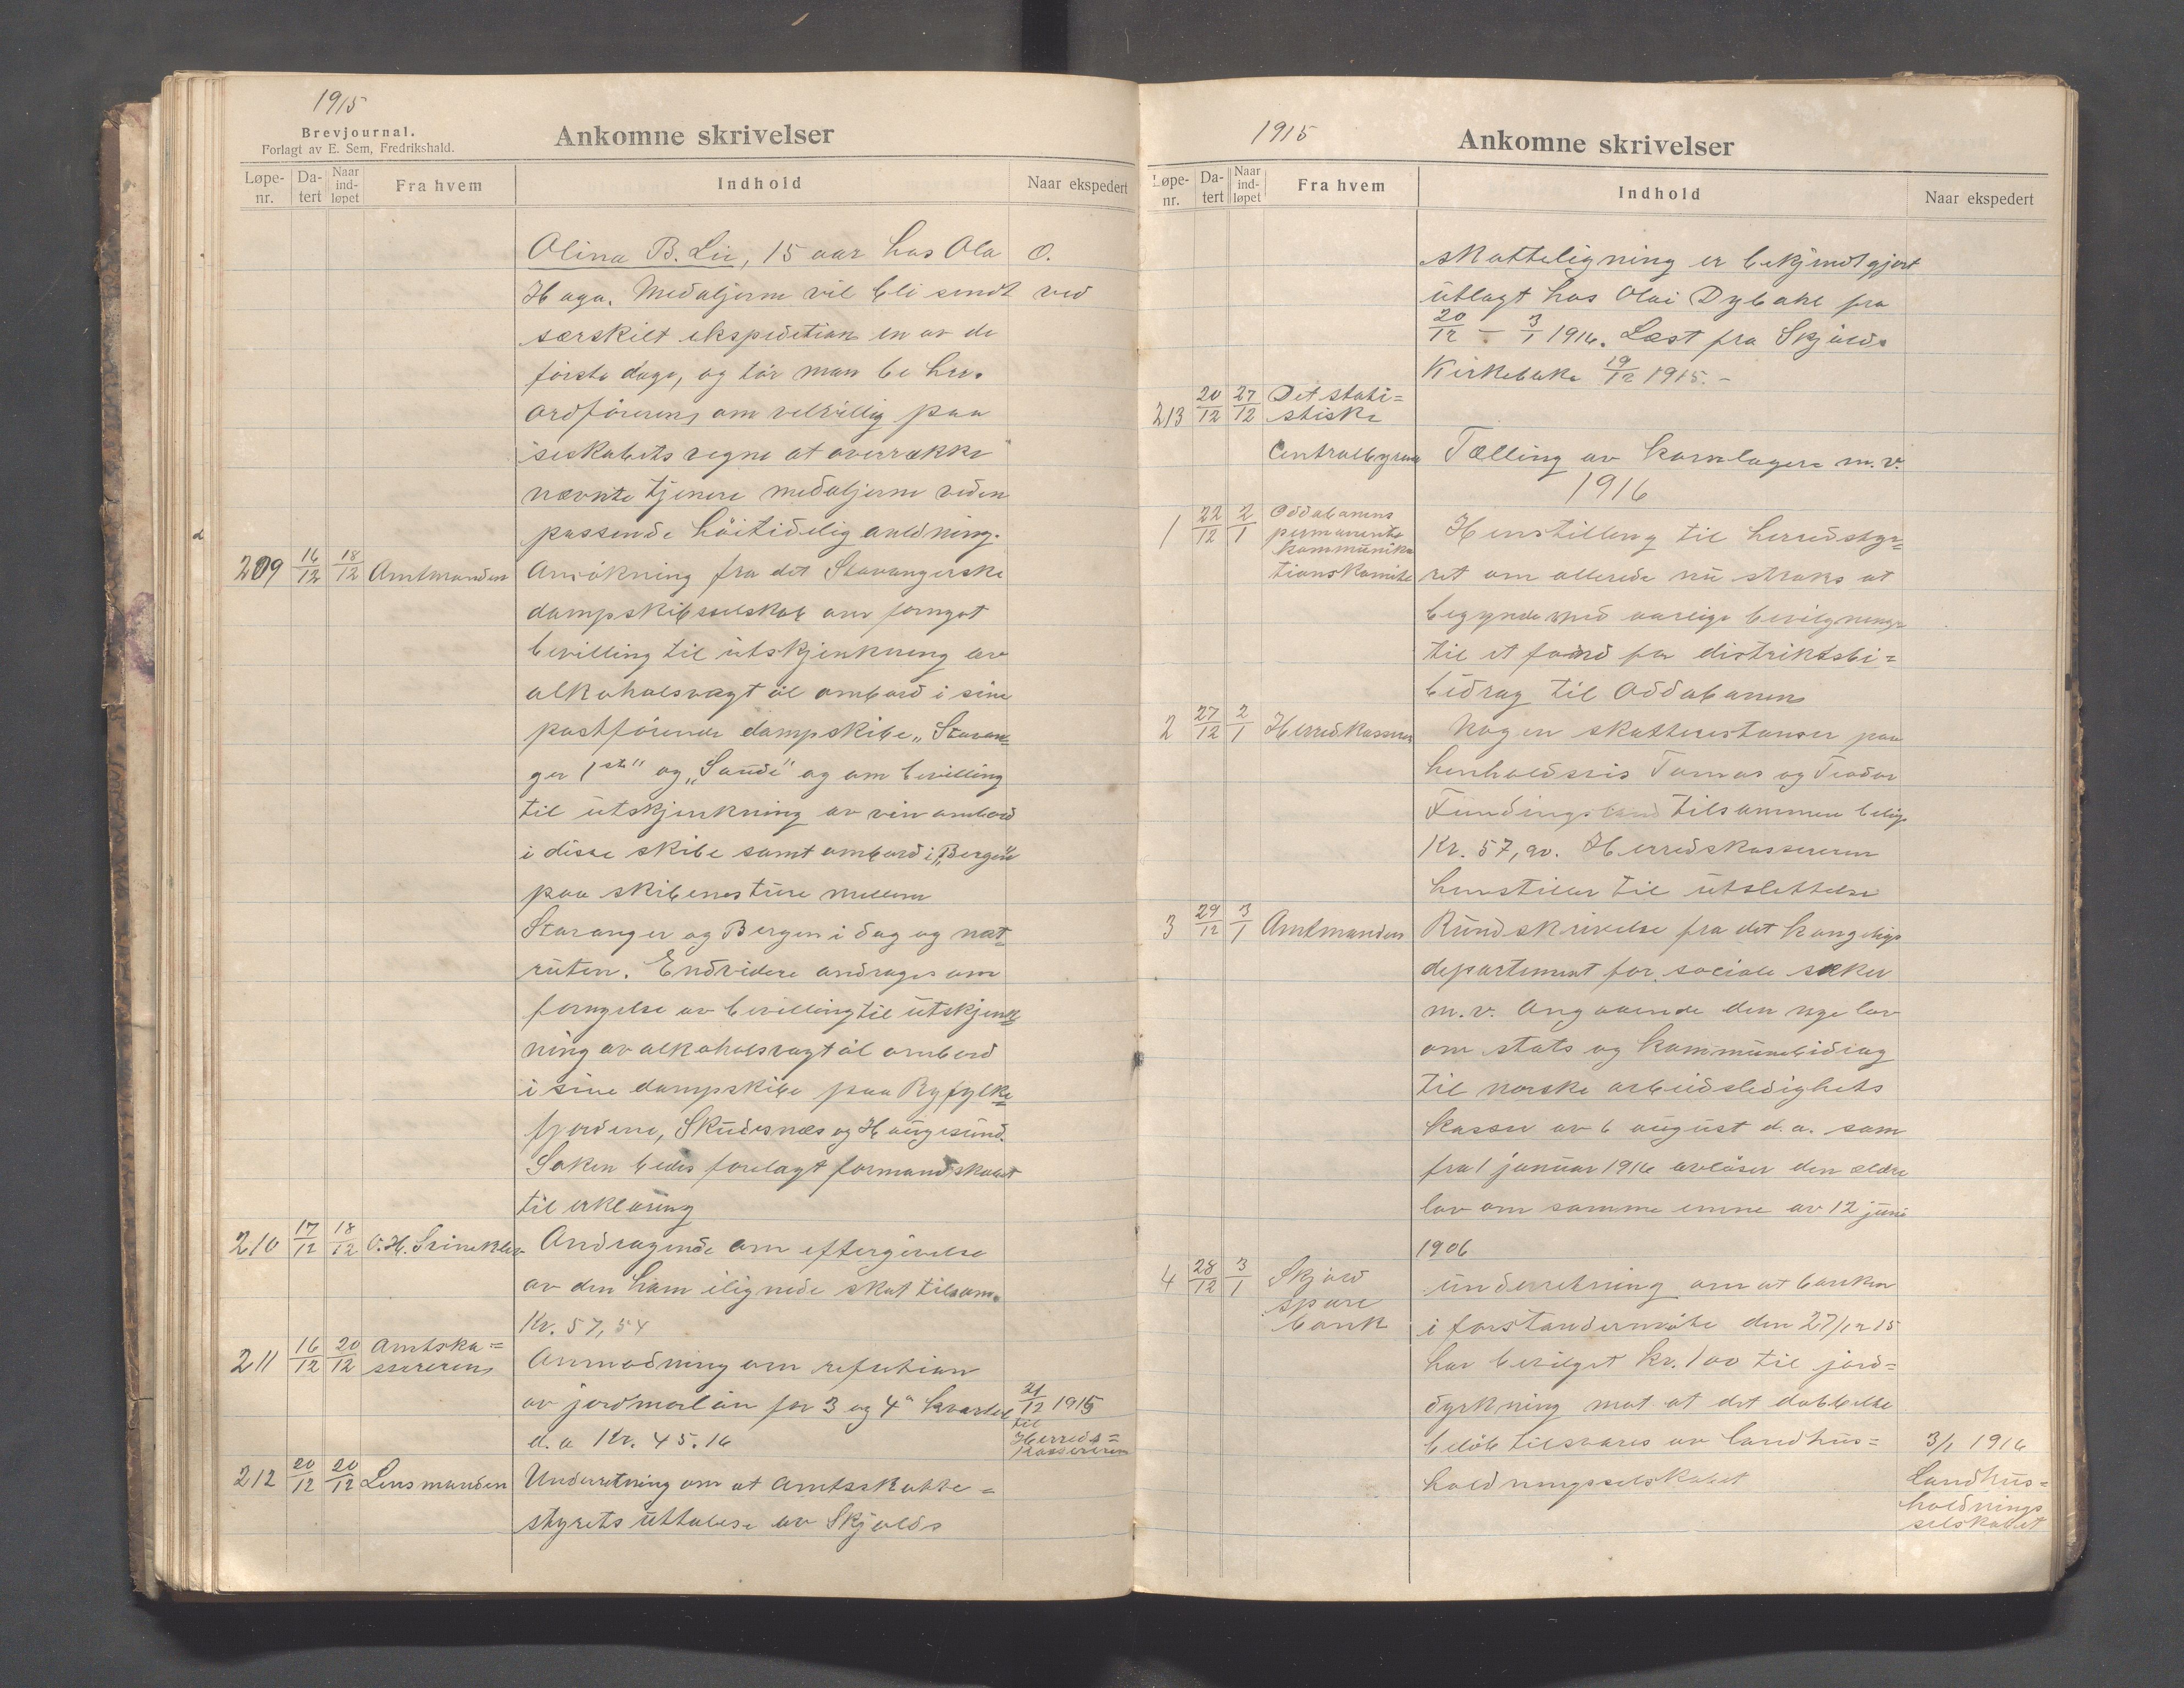 1915
Brevjournal.
Forlagt av E. Sem, Fredrikshald.
Ankomne skrivelser
Løpe-nr. Da-tert Naar ind-løpet Fra hvem Indhold Naar ekspedert
Olina B. Lie, 15 aar hos Ola O.
Haga. Medaljerne vil bli sendt ved
særskilt ekspedition en av de
første dage, og tør man be hr.
ordføreren, om velvillig paa
selskabets vegne at overrække
nævnte tjenere medaljerne ved en
passende høitidelig anledning.
209 16/12 18/12 Amtmanden Ansøkning fra det Stavangerske
dampskibsselskab om fornyet
bevilling til utskjenkning av
alkoholsvagt øl ombord i sine
postførende dampskibe „Stavan-
ger 1ste" og „Sande" og om bevilling
til utskjenkning av vin ombord
i disse skibe samt ombord i „Bergen"
paa skibenes ture mellem
Stavanger og Bergen i dag og nat-
ruten. Endvidere andrages om
fornyelse av bevilling til utskjenk-
ning av alkoholsvagt øl ombord
i sine dampskibe paa Ryfylke-
fjordene, Skudesnes og Haugesund.
Saken bedes forelagt formandskabet
til erklæring
210 17/12 18/12 O. H. Andragende om eftergivelse
av den ham ilignede skat tilsam.
Kr. 57,54
211 16/12 20/12 Amtska=
ssereren Anmodning om refution
av jordmorløn for 3 og 4de kvartal 21/12 1915
til
d.a Kr. 45.16 Herreds=
kassereren
212 20/12 20/12 Lensmanden Underretning om at Amtsskatte=
styrets uttalelse av Skjolds
1915
Ankomne skrivelser
Løpe-nr. Da-tert Naar ind-løpet Fra hvem Indhold Naar ekspedert
skatteligning er bekjendtgjort
utlagt hos Olai Dybahl fra
20/12 - 3/1 1916. Læst fra Skjolds
Kirkebakke 19/12 1915.-
213 20/12 27/12 Det stati=
stiske
Centralbyraa Tælling av kornlagere m.v.
1916
1 22/12 2/1 Oddabanens
permanente
kommunika
tionskomite Henstilling til herredsty=
ret om allerede nu straks at
begynde med aarlige bevilgninger
til et fond for distriktsbi=
bidrag til Oddabanen
2 27/12 2/1 Herredkasserer Nogen skatterestanser paa
henholdsvis Tomas og Teodor
Fundingsland tilsammen beløp
Kr. 57,90. Herredskassereren
henstiller til utslettelse
3 29/12 3/1 Amtmanden Rundskrivelse fra det kongelige
departement for sociale saker
m.v. Angaaende den nye lov
om stats og kommunebidrag
til norske arbeidsledighets
kasser av 6 august d.a. som
fra 1 januar 1916 avløser den ældre
lov om samme emne av 12 juni
1906
4 28/12 3/1 Skjold
spare
bank underretning om at banken
i forstandermøte den 27/12 15
har bevilget kr. 100 til jord=
dyrkning mot at det dobbelte
beløb tilsvares av landhus= 3/1 1916
holdningsselskabet landhus=
holdnings
selskabet